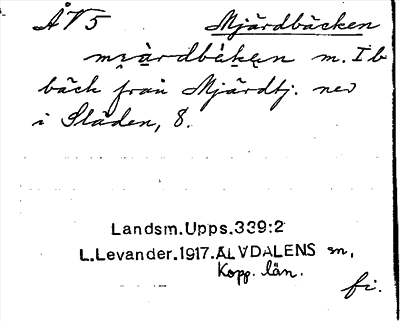 ÅV5 Mjärdbäcken
mjärdbäkęn m. I b
bäck från Mjärdtj. ned
i Slåden, 8.
Landsm.Upps.339:2
L.Levander.1917.ÄLVDALENS sn,
Kopp. län.
fi.